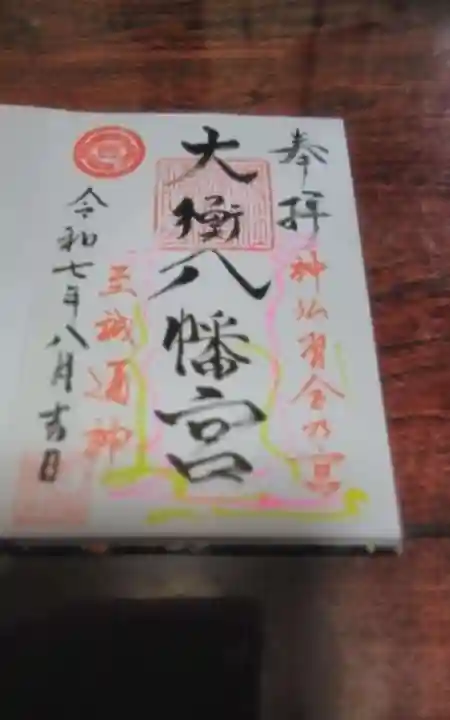 奉拝
神仏習合乃宮
大衡八幡宮
至誠通神
令和七年八月吉日